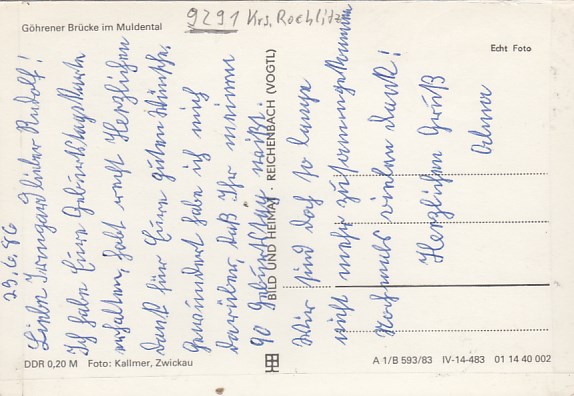 Göhrener Brücke im Muldental
9291 Krs. Rochlitz
Echt Foto
29.6.86
Liebe Irmgard lieber Rudolf!
Ich habe Eure Geburtstagskarte
erhalten, habt recht Herzlichen
Dank für Eure guten Wünsche.
Gewundert habe ich mich
darüber, daß Ihr meinen
90 Geburtstag wißt.
Wir sind doch so lange
nicht mehr zusammengekommen
Nochmals vielen Dank!
Herzlichen Gruß
BILD UND HEIMAT · REICHENBACH (VOGTL)
DDR 0,20 M Foto: Kallmer, Zwickau
A 1/B 593/83 IV-14-483 01 14 40 002